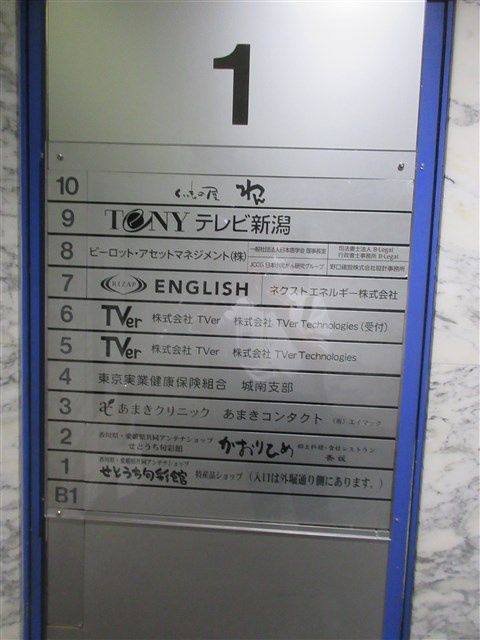 1
10 くいもの屋 わん
9 TeNY テレビ新潟
8 ビーロット・アセットマネジメント(株) 一般社団法人日本癌学会 理事長室 司法書士法人 B-Legal
行政書士事務所 B-Legal
JCOG 日本臨床がん研究グループ 野口建設株式会社設計事務所
7 RIZAP ENGLISH ネクストエネルギー株式会社
6 TVer 株式会社 TVer 株式会社 TVer Technologies(受付)
5 TVer 株式会社 TVer 株式会社 TVer Technologies
4 東京実業健康保険組合 城南支部
3 あまきクリニック あまきコンタクト (有)エイアック
2 香川県・愛媛県共同アンテナショップ
せとうち旬彩館 かおりひめ 郷土料理と食材レストラン
1 香川県・愛媛県共同アンテナショップ
せとうち旬彩館 特産品ショップ (入口は外堀通り側にあります。)
B1